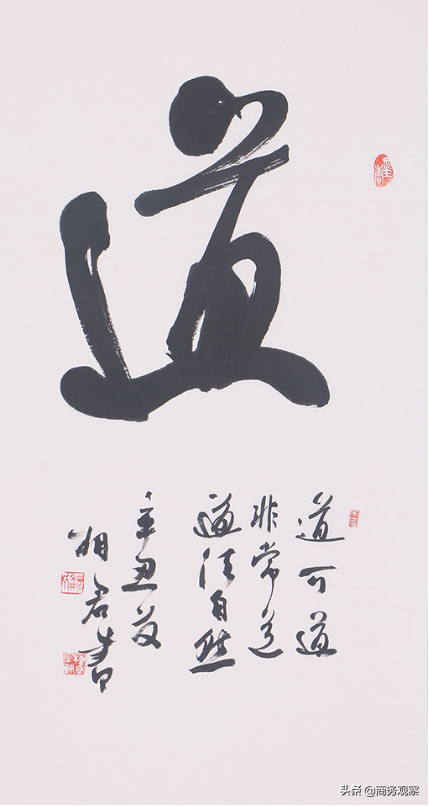 道
道可道
非常道
道法自然
辛丑夏
相君書
头条 @商务观察